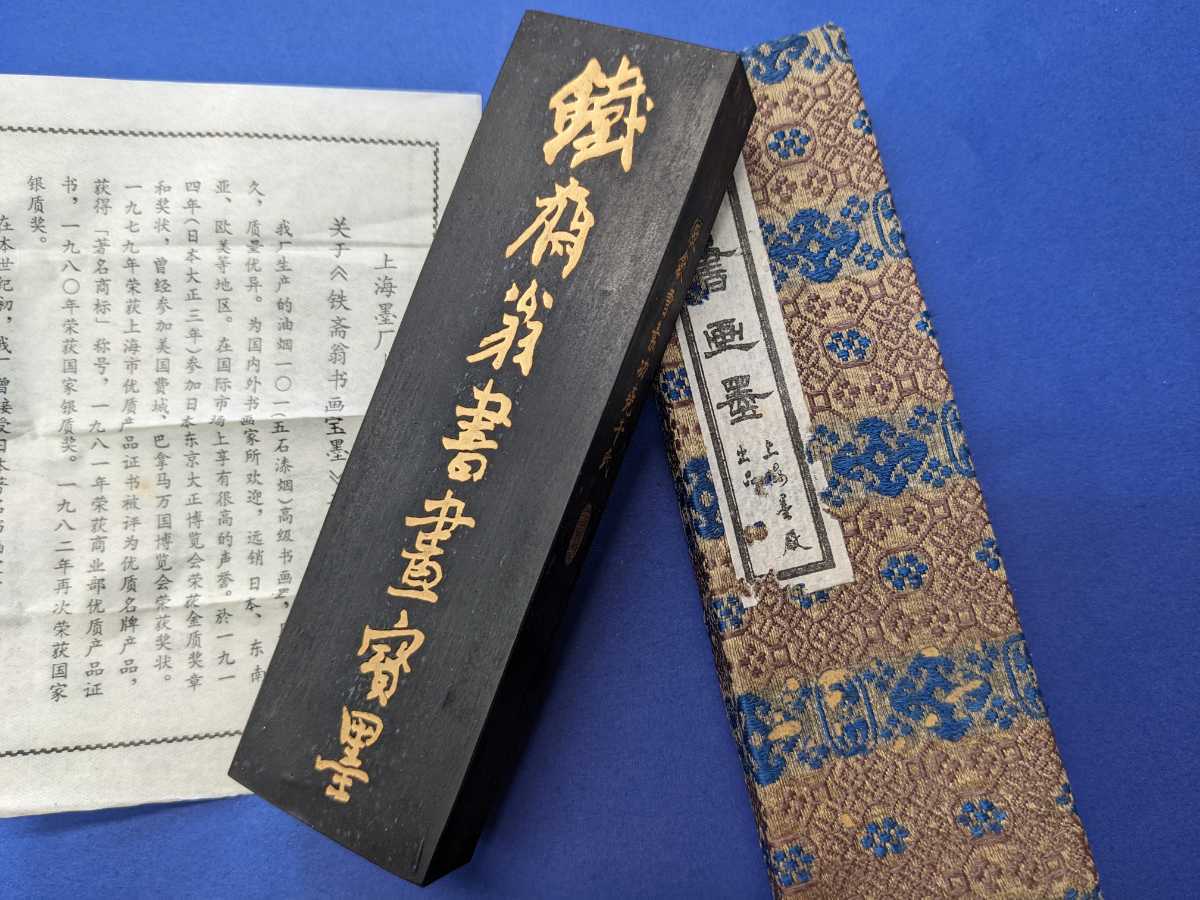 上海墨厂
关于《铁斋翁书画宝墨》
我厂生产的油烟一〇一(五石漆烟)高级书画
久，质量优异。为国内外书画家所欢迎，远销日本、东南
亚、欧美等地区。在国际市场上享有很高的声誉。於一九一
四年(日本大正三年)参加日本东京大正博览会荣获金质奖章
和奖状，曾经参加美国费城、巴拿马万国博览会荣获奖状。
一九七九年荣获上海市优质产品证书被评为优质名牌产品，
获得「著名商标」称号，一九八一年荣获商业部优质产品证
书，一九八〇年荣获国家银质奖。一九八二年再次荣获国家
银质奖。
在本世纪初，我厂曾接受日本著名
鐵齋翁書畫寶墨
書画墨
上海墨厰
出品